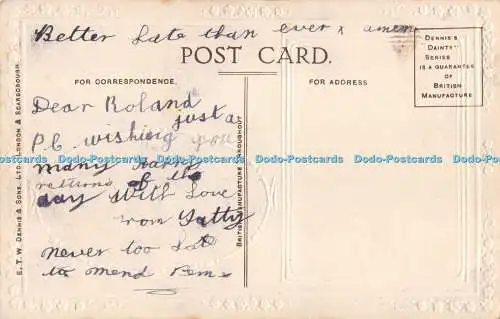 Better late than ever x amen
POST CARD.
DENNIS'S
DAINTY
SERIES
IS A GUARANTEE
OF
BRITISH
MANUFACTURE
FOR CORRESPONDENCE.
FOR ADDRESS
Dear Roland
just a
P.C. wishing you
many happy
returns of the
day with love
from Fatty
never too late
to mend
E. T. W. DENNIS & SONS, LTD., LONDON & SCARBOROUGH
BRITISH MANUFACTURE THROUGHOUT
Dodo-Postcards Dodo-Postcards Dodo-Postcards Dodo-Postcards Dodo-Postcards